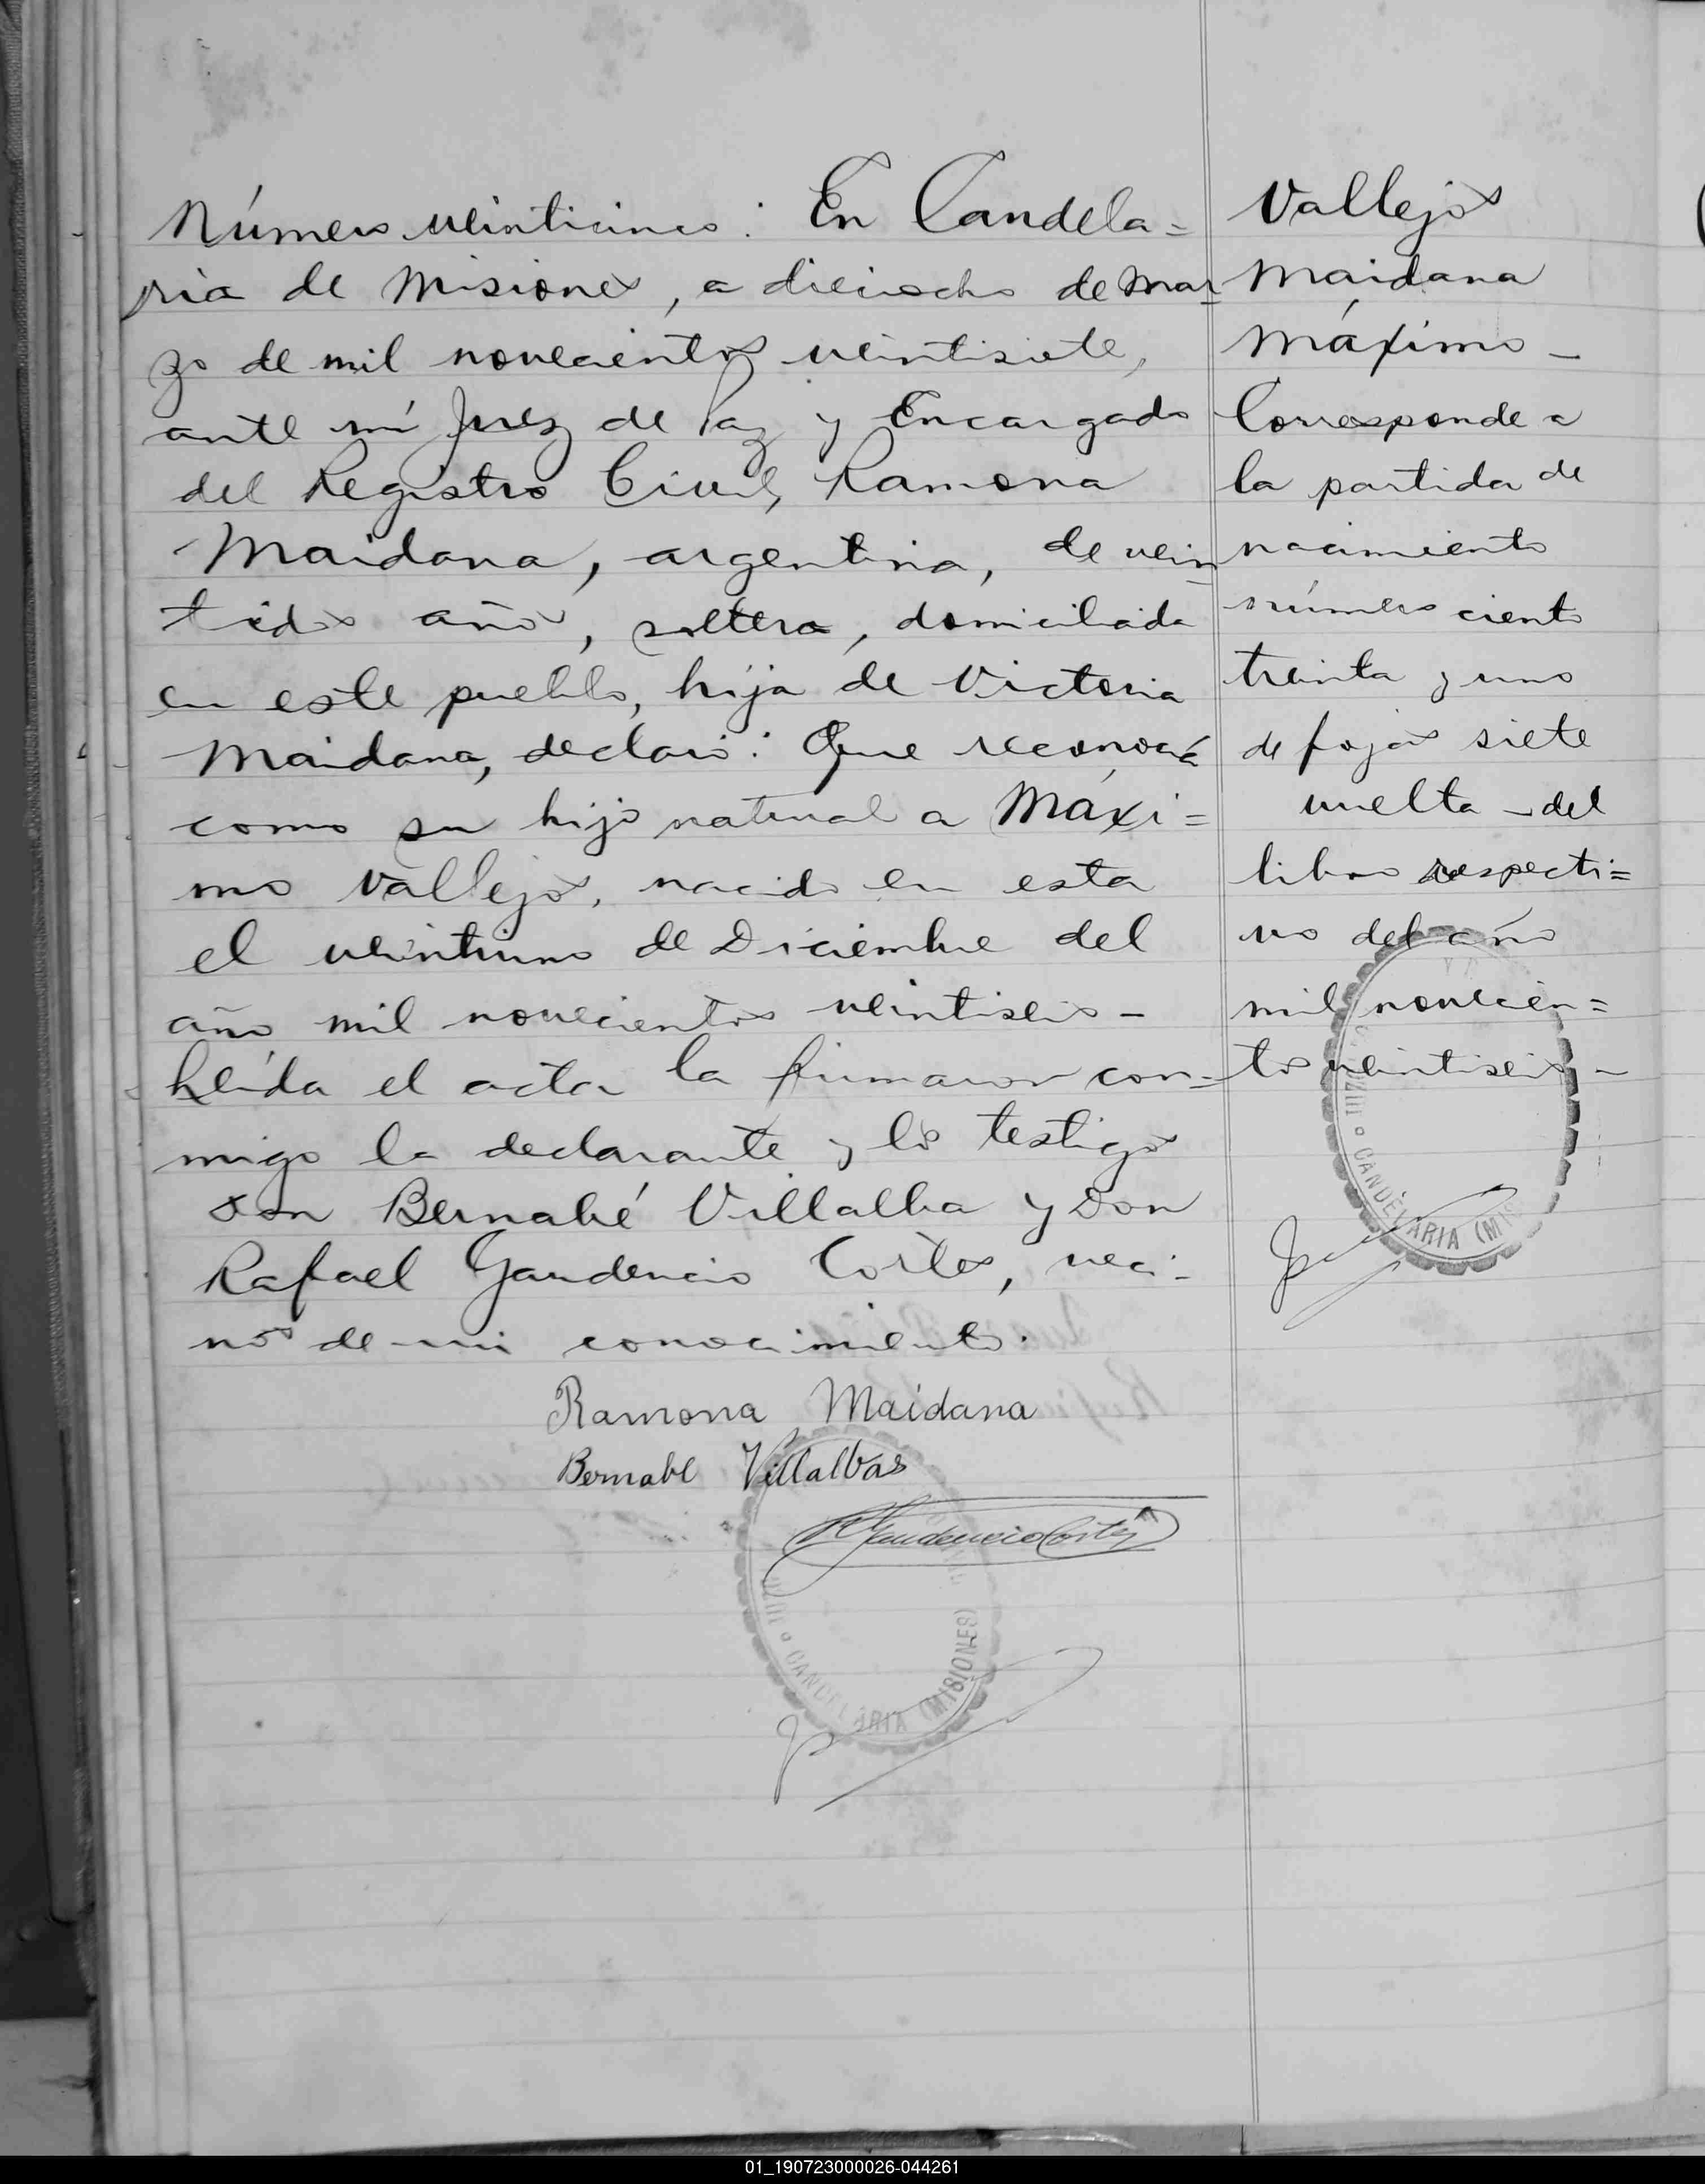 Número veinticinco: En Candela=
ria de Misiones, a dieciocho de Mar-
zo de mil novecientos veintisiete,
ante mí Juez de Paz y Encargado
del Registro Civil, Ramona
Maidana, argentina, de vein
tidós años, soltera, domiciliada
en este pueblo, hija de Victoria
Maidana, declaró: Que reconoce
como su hijo natural a Máxi=
mo Vallejos, nacido en esta
el veintiuno de Diciembre del
año mil novecientos veintiseis-
Leída el acta la firmaron con-
migo la declarante y los testigos
don Bernabé Villalba y Don
Rafael Gaudencio Cortes, veci-
nos de mi conocimiento.
Ramona Maidana
Bernabe Villalbas
R Gaudencio Cortés
CANDELARIA (MISIONES)
Vallejos
Maidana
Máximo -
Corresponde a
la partida de
nacimiento
número ciento
treinta y uno
de fojas siete
vuelta - del
libro respecti=
vo del año
mil novecien=
tos veintiseis -
CANDELARIA (MIS
01_190723000026-044261